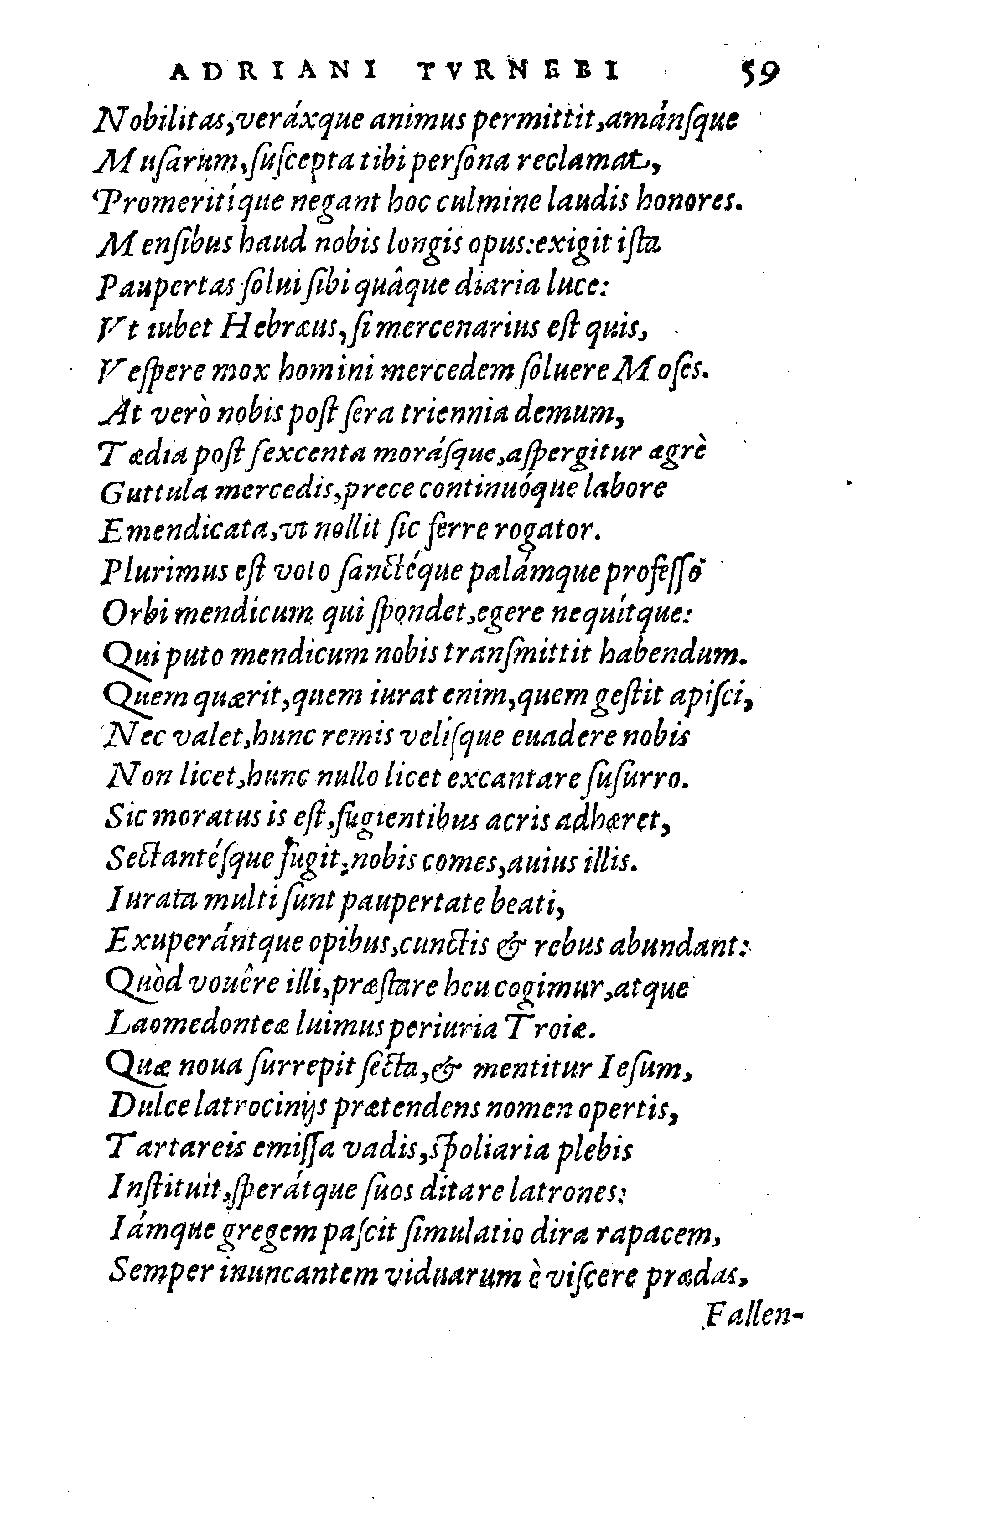 ADRIANI TVRNEBI 59
Nobilitas, veráxque animus permittit, amánſque
Muſarum, ſuſcepta tibi perſona reclamat,
Promeritíque negant hoc culmine laudis honores.
Menſibus haud nobis longis opus: exigit iſta
Paupertas ſolui ſibi quâque diaria luce:
Vt iubet Hebræus, ſi mercenarius eſt quis,
Veſpere mox homini mercedem ſoluere Moſes.
At verò nobis poſt ſera triennia demum,
Tædia poſt ſexcenta moráſque, aſpergitur ægrè
Guttula mercedis, prece continuóque labore
Emendicata, vt nollit ſic ferre rogator.
Plurimus eſt voto ſanctéque palámque profeſſo
Orbi mendicum qui ſpondet, egere nequítque:
Qui puto mendicum nobis tranſmittit habendum.
Quem quærit, quem iurat enim, quem geſtit apiſci,
Nec valet, hunc remis velíſque euadere nobis
Non licet, hunc nullo licet excantare ſuſurro.
Sic moratus is eſt, fugientibus acris adhæret,
Sectantéſque fugit, nobis comes, auius illis.
Iurata multi ſunt paupertate beati,
Exuperántque opibus, cunctis & rebus abundant:
Quòd vouêre illi, præſtare heu cogimur, atque
Laomedonteæ luimus periuria Troiæ.
Quæ noua ſurrepit ſecta, & mentitur Ieſum,
Dulce latrocinijs prætendens nomen opertis,
Tartareis emiſſa vadis, ſpoliaria plebis
Inſtituit, ſperátque ſuos ditare latrones:
Iámque gregem paſcit ſimulatio dira rapacem,
Semper inuncantem viduarum è viſcere prædas,
Fallen-